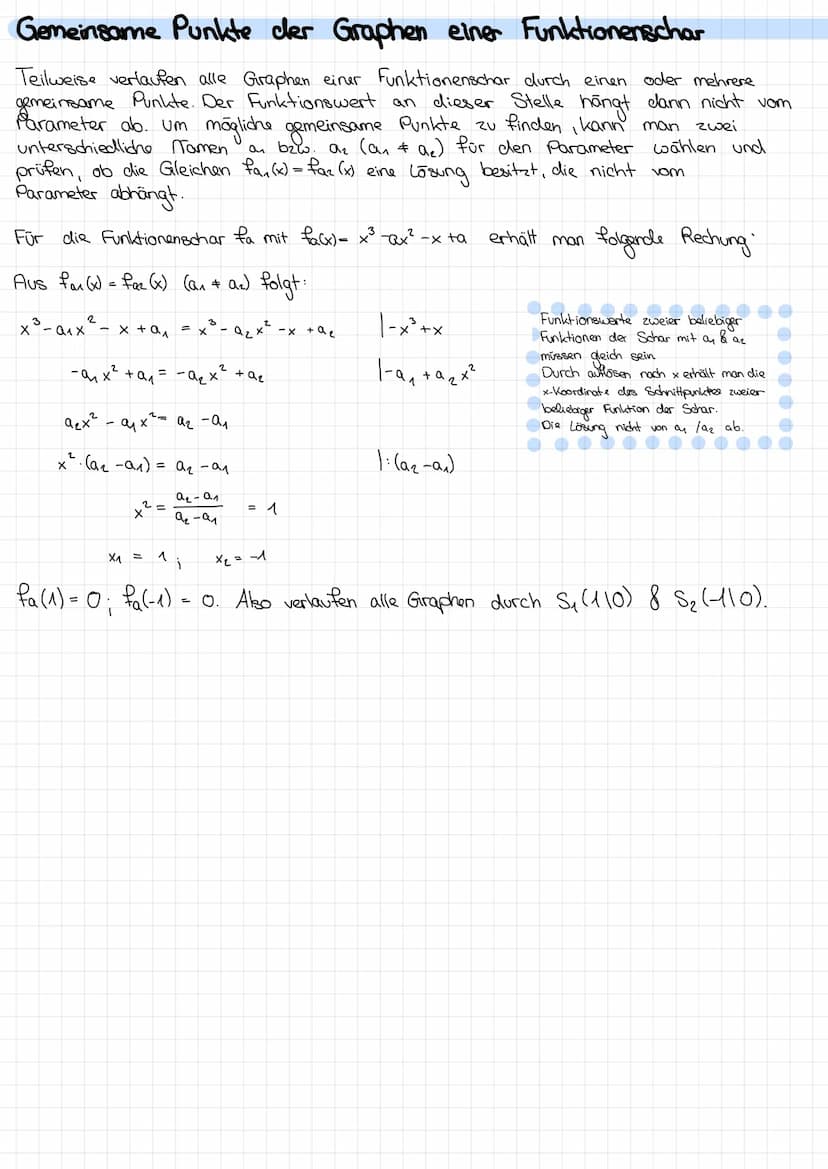 Gemeinsame Punkte der Graphen einer Funktionenschar
Teilweise verlaufen alle Graphen einer Funktionenschar durch einen oder mehrere
gemeinsame Punkte. Der Funktionswert an dieser Stelle hängt dann nicht vom
Parameter ab. Um mögliche gemeinsame Punkte zu finden, kann man zwei
unterschiedliche Namen a₁ bzw. a₂ (a₁ ≠ a₂) für den Parameter wählen und
prüfen, ob die Gleichen fa₁(x) = fa₂(x) eine Lösung besitzt, die nicht vom
Parameter abhängt.
Für die Funktionenschar fa mit fa(x) = x³ - ax² - x + a erhält man folgende Rechung:
Aus fa₁(x) = fa₂(x) (a₁ ≠ a₂) folgt:
x³ - a₁x² - x + a₁ = x³ - a₂x² - x + a₂ |-x³ + x
-a₁x² + a₁ = -a₂x² + a₂ |-a₁ + a₂x²
a₂x² - a₁x² = a₂ - a₁
x² · (a₂ - a₁) = a₂ - a₁ |: (a₂ - a₁)
x² = (a₂ - a₁)/(a₂ - a₁) = 1
x₁ = 1; x₂ = -1
Funktionswerte zweier beliebiger
Funktionen der Schar mit a₁ & a₂
müssen gleich sein
Durch auflösen nach x erhält man die
x-Koordinate des Schnittpunktes zweier
beliebiger Funktion der Schar.
Die Lösung nicht von a₁ / a₂ ab.
fa(1) = 0; fa(-1) = 0. Also verlaufen alle Graphen durch S₁(1|0) & S₂(-1|0).